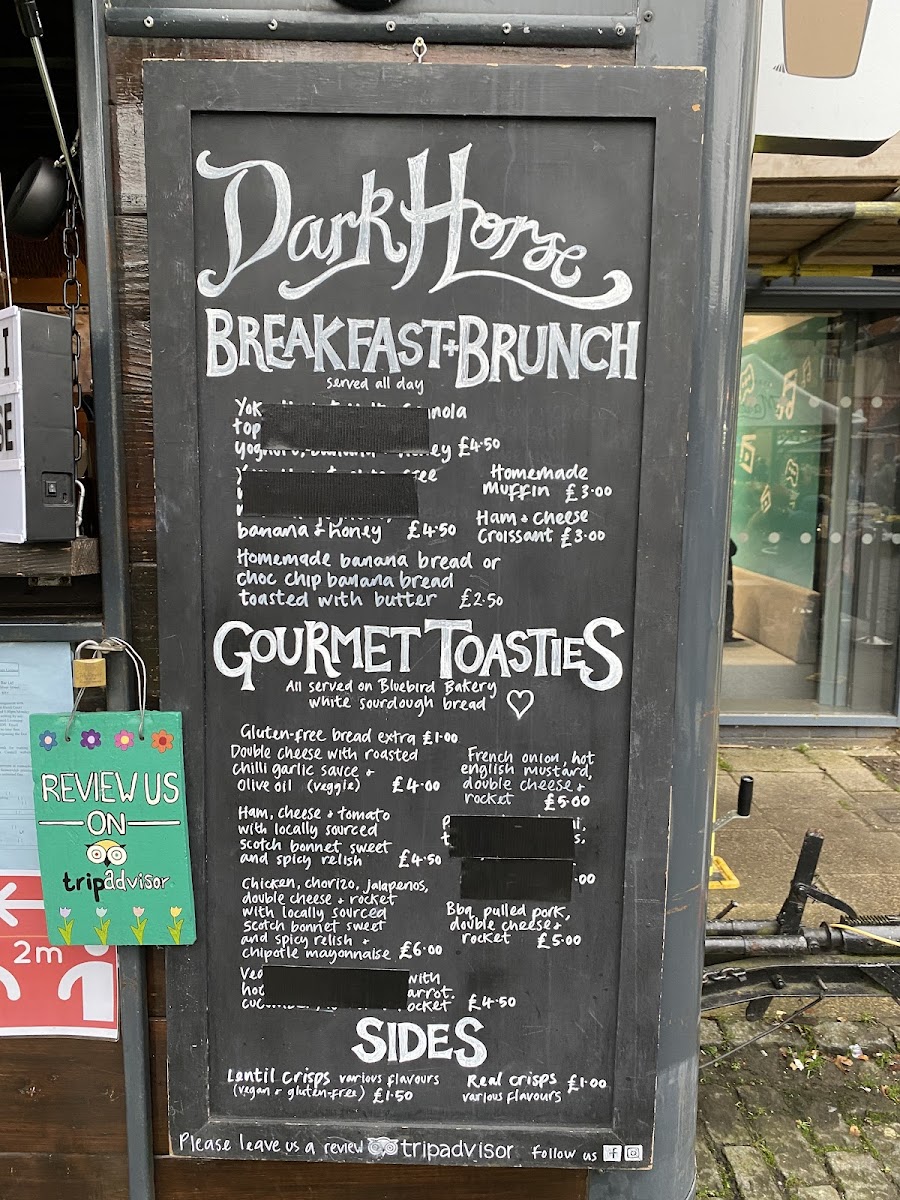 Dark Horse
BREAKFAST + BRUNCH
served all day
£4.50
banana & honey £4.50
Homemade
Muffin £3.00
Ham + Cheese
Croissant £3.00
Homemade banana bread or
choc chip banana bread
toasted with butter £2.50
GOURMET TOASTIES
All served on Bluebird Bakery
white sourdough bread
Gluten-free bread extra £1.00
Double cheese with roasted
chilli garlic sauce +
olive oil (veggie) £4.00
French onion, hot
english mustard,
double cheese +
rocket £5.00
Ham, cheese + tomato
with locally sourced
scotch bonnet sweet
and spicy relish £4.50
Chicken, chorizo, jalapenos,
double cheese + rocket
with locally sourced
scotch bonnet sweet
and spicy relish +
chipotle mayonnaise £6.00
Bbq pulled pork,
double cheese +
rocket £5.00
with
£4.50
SIDES
Lentil crisps various flavours
(vegan + gluten-free) £1.50
Real crisps £1.00
various flavours
Please leave us a review tripadvisor Follow us
REVIEW US
ON
tripadvisor
2m